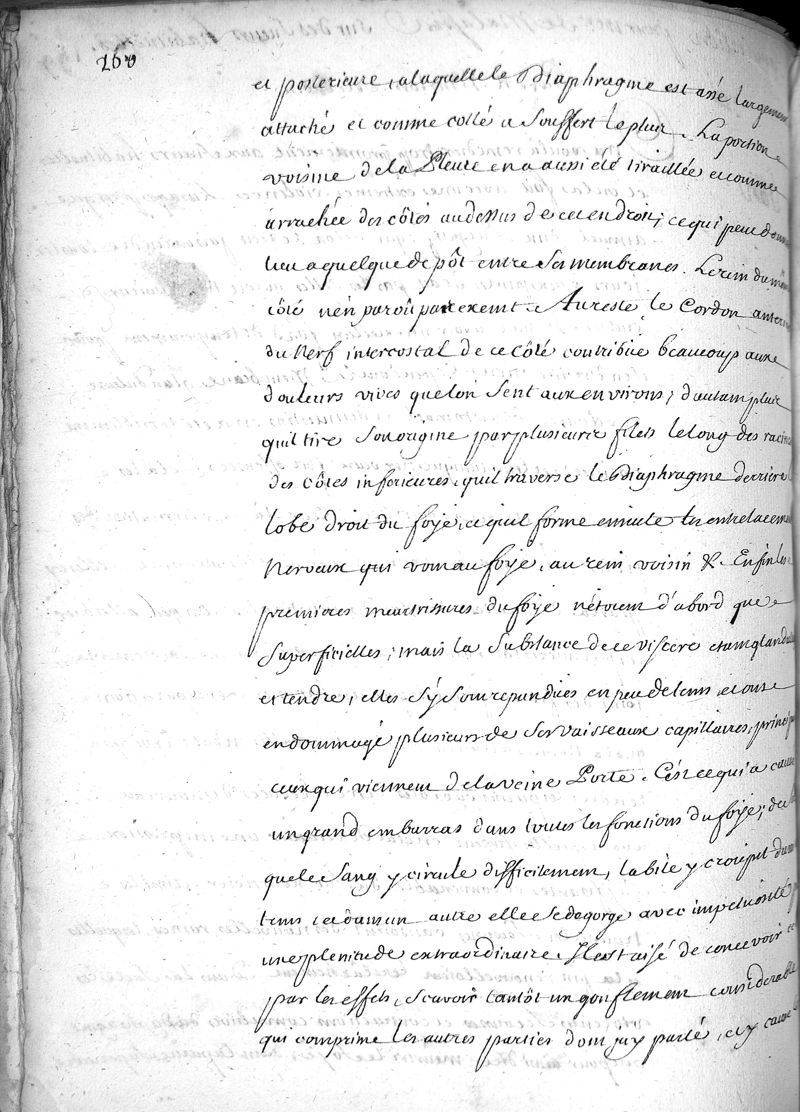 260
et posterieure, a laquelle le Diaphragme est assé largement
attaché et comme collé a Souffert le plus. La portion
voisine de la Pleure en a aussi eté tiraillée et comme
arrachée des côtés au dessus de cet endroit; ce qui peut donner
lieu a quelque depôt entre ses membranes. Le rein du même
côté n'en paroît pas exemt. Au reste le Cordon anterieur
du Nerf intercostal de ce Côté contribüe beaucoup aux
douleurs vives que lon sent aux environs; d'autant plus
quil tire son origine par plusieurs filets le long des racines
des côtes inferieures, quil traverse le Diaphragme derriere le
lobe droit du foye, et quil forme ensuite les entrelacemens
Nerveux qui vont au foye, au rein voisin &. Enfin les
premieres meurtrissures du foye n'étoient d'abord que
Superficielles; mais la Substance de ce viscere etant glanduleuse
et tendre, elles s'y sont repandües en peu de tems, et ont
endommagé plusieurs de ses vaisseaux capillaires, principalement
ceux qui viennent de la veine Porte. C'est ce qui a causé
un grand embarras dans toutes les fonctions du foye; de la
que le Sang y circule difficilement, la bile y croupit dans un
tems et dans un autre elle se degorge avec impetuosité
une plenitude extraordinaire. Il est aisé de concevoir
par les effets, Scavoir tantôt un gonflement considerable
qui comprime les autres parties dont j'ay parlé, et y cause